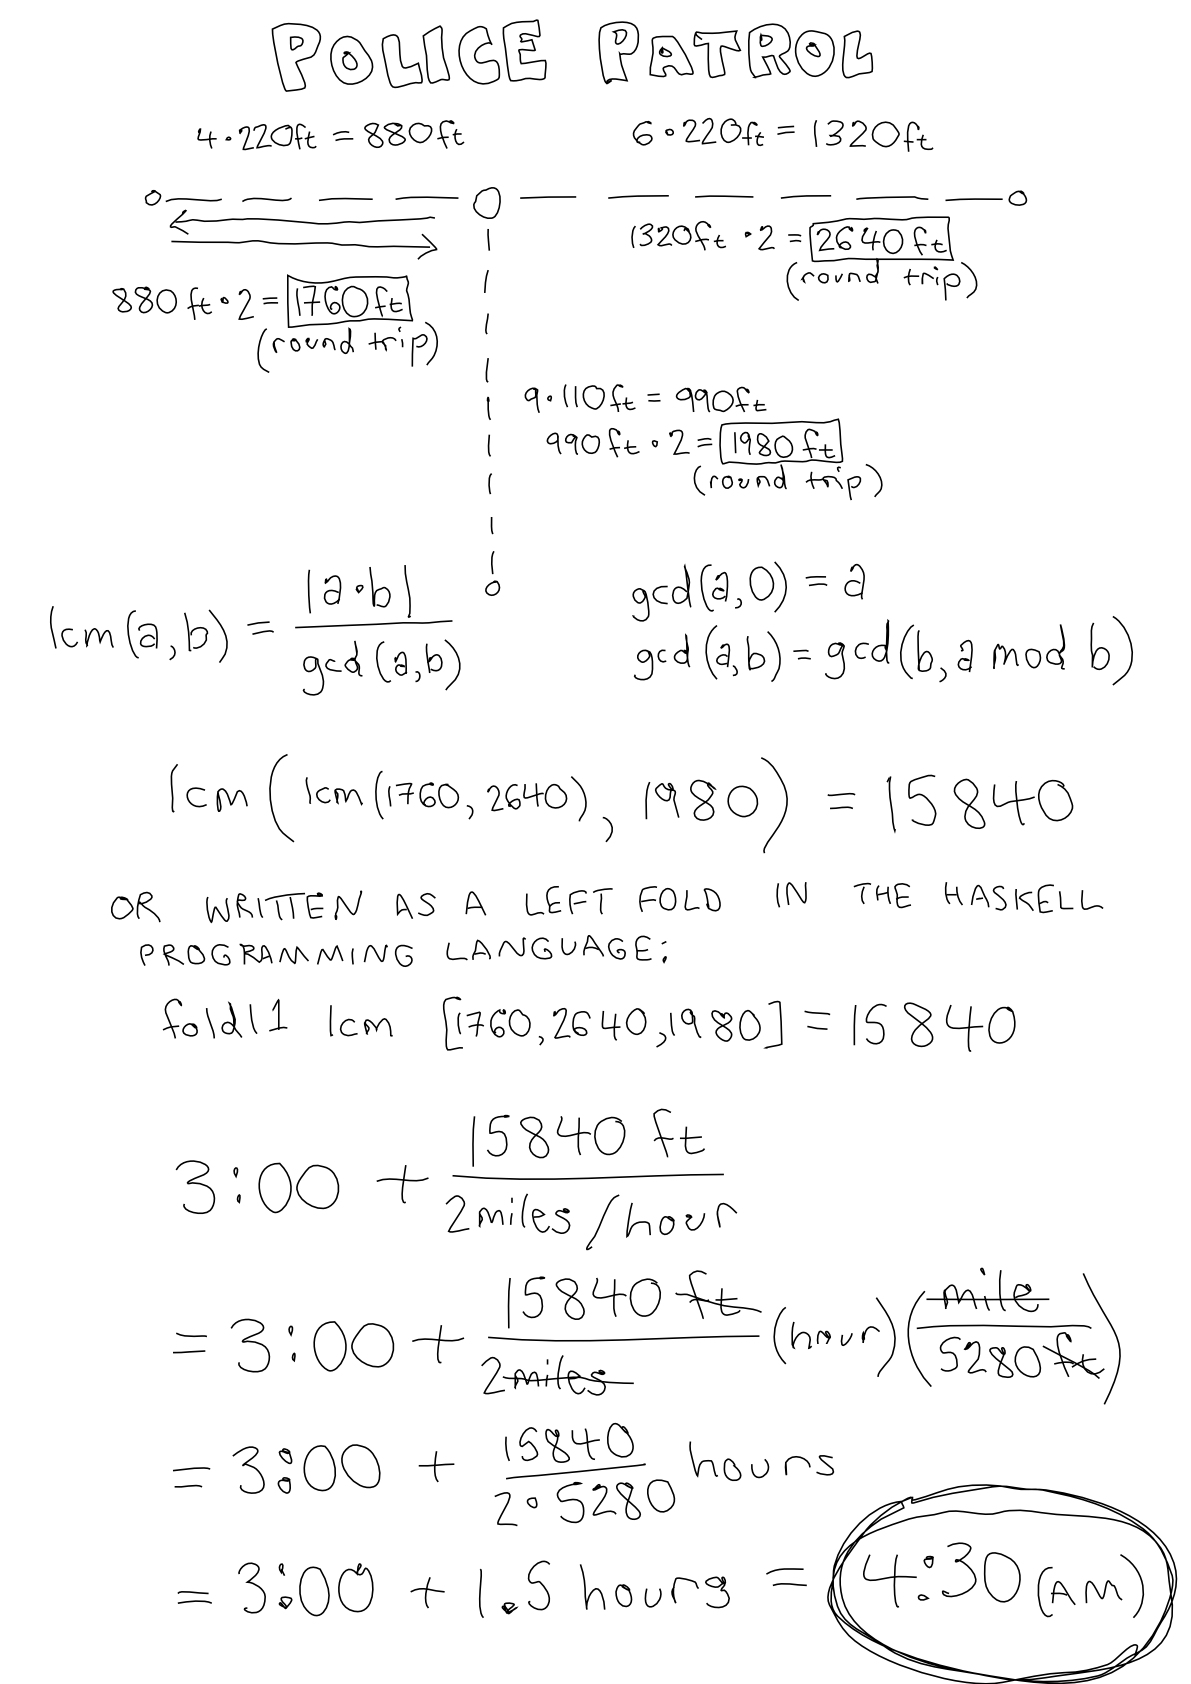 POLICE PATROL
4·220ft = 880ft
6·220ft = 1320ft
1320ft ·2 = 2640ft
(round trip)
880ft·2 = 1760ft
(round trip)
9·110ft = 990ft
990ft·2 = 1980ft
(round trip)
lcm(a,b) = |a·b| / gcd(a,b)
gcd(a,0) = a
gcd(a,b) = gcd(b, a mod b)
lcm(lcm(1760, 2640), 1980) = 15840
OR WRITTEN AS A LEFT FOLD IN THE HASKELL
PROGRAMMING LANGUAGE:
foldl1 lcm [1760,2640,1980] = 15840
3:00 + 15840 ft / 2miles/hour
= 3:00 + 15840 ft / 2miles (hour) (mile / 5280ft)
= 3:00 + 15840 / 2·5280 hours
= 3:00 + 1.5 hours = 4:30 (AM)